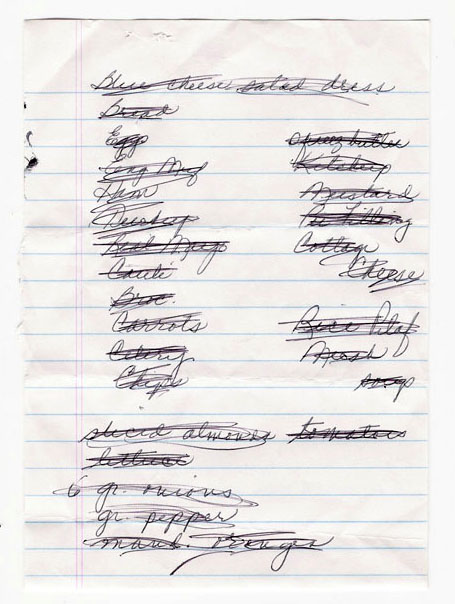 Blue cheese salad dress
Bread
Eggs
Eng Muf
Ham
Newspap
Read Mags
Cauli
Broc.
Carrots
Celery
Chips
spray butter
Ketchup
Mustard
Pie Filling
Cottage
Cheese
Rice Pilaf
Mesh
soap
sliced almonds
tomatoes
lettuce
6 gr. onions
gr. pepper
mand. oranges